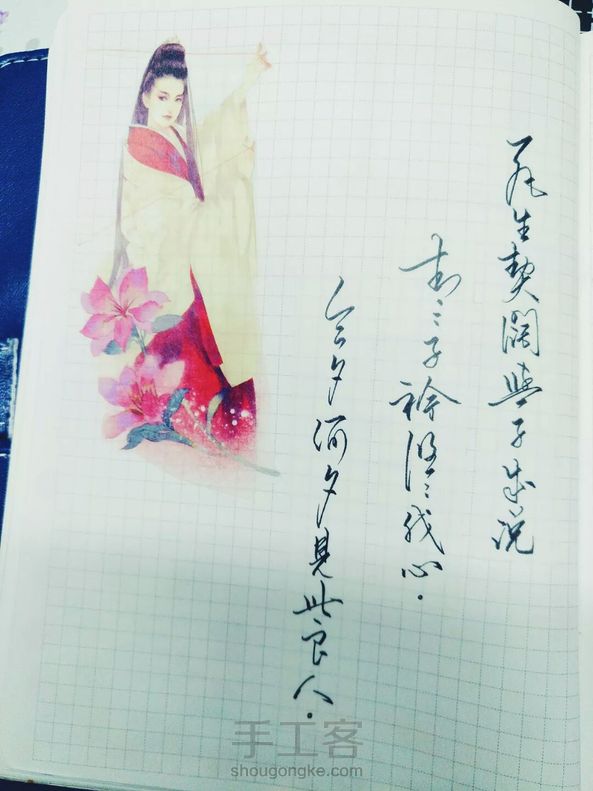 死生契阔與子成说
青青子衿悠悠我心.
今夕何夕見此良人.
手工客
shougongke.com